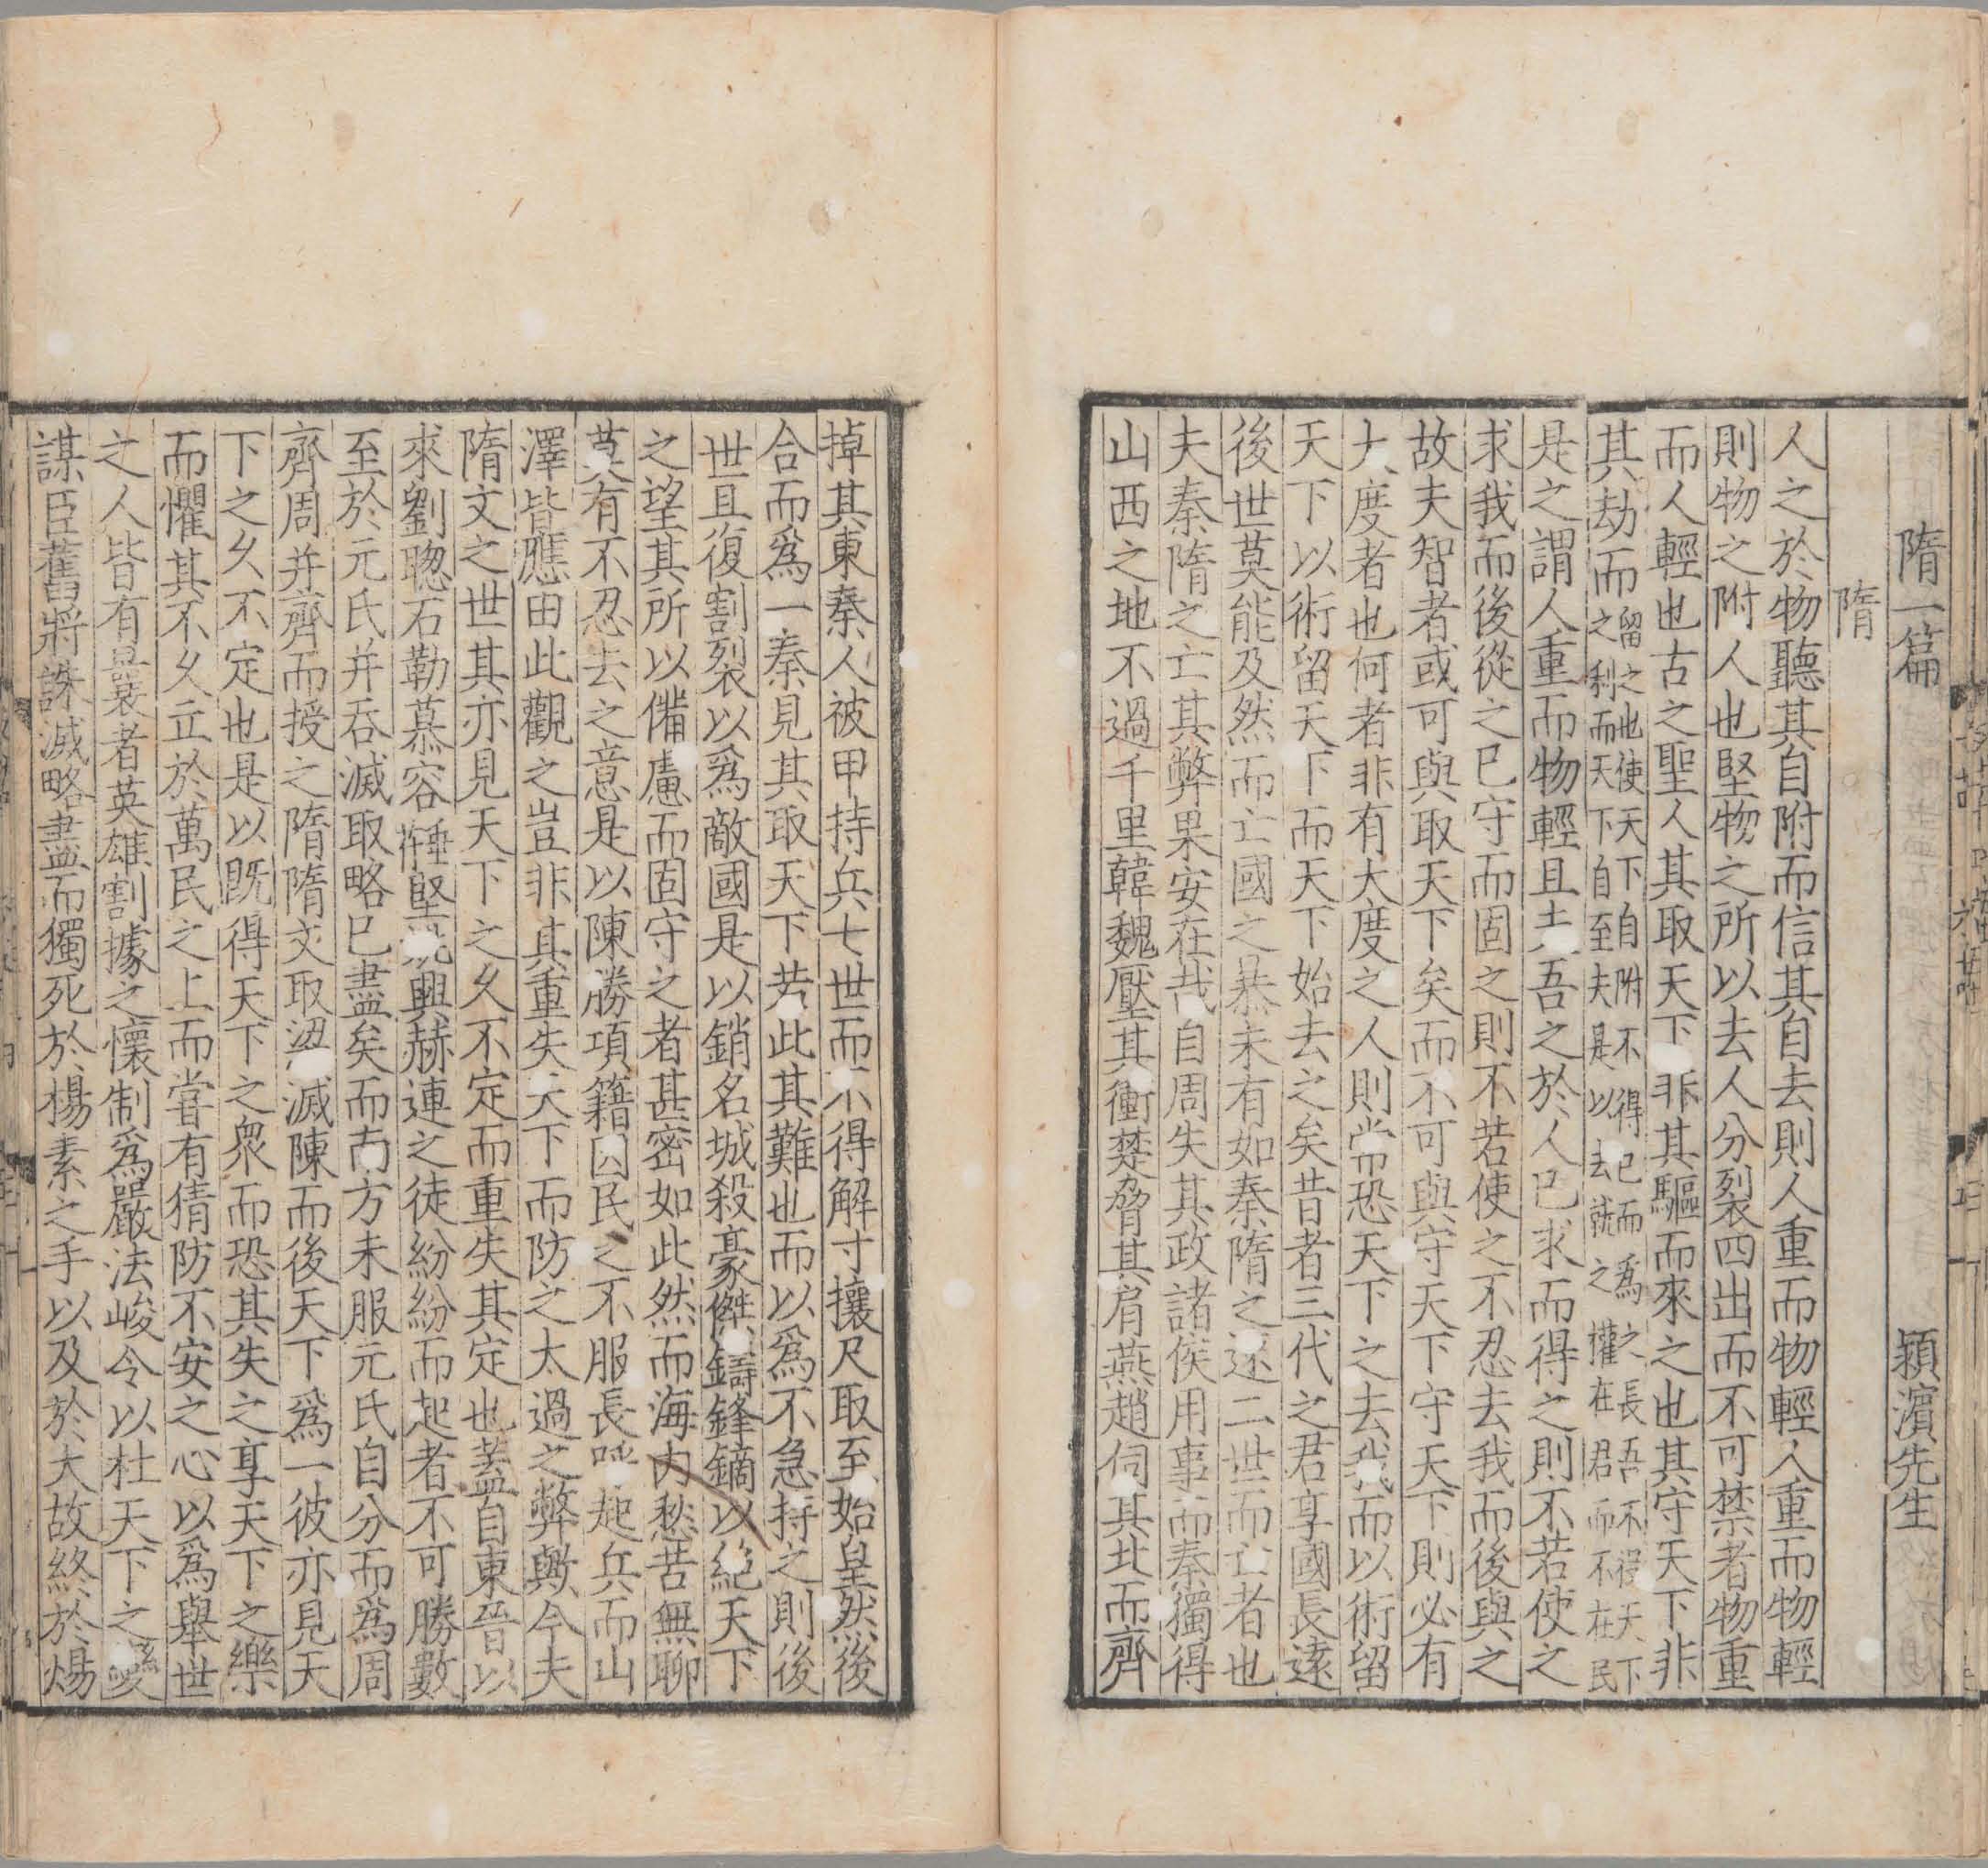 隋一篇　頴濱先生
隋
人之於物聽其自附而信其自去則人重而物輕人重而物輕
則物之附人也堅物之所以去人分裂四出而不可禁者物重
而人輕也古之聖人其取天下非其驅而來之也其守天下非
其劫而留之也使天下自附不得已而為之長吾不役天下
之利而天下自至夫是以去就之權在君而不在民
是之謂人重而物輕且夫吾之於人已求而得之則不若使之
求我而後從之已守而固之則不若使之不忍去我而後與之
故夫智者或可與取天下矣而不可與守天下守天下則必有
大度者也何者非有大度之人則常恐天下之去我而以術留
天下以術留天下而天下始去之矣昔者三代之君享國長遠
後世莫能及然而亡國之暴未有如秦隋之速二世而亡者也
夫秦隋之亡其弊果安在哉自周失其政諸侯用事而秦獨得
山西之地不過千里韓魏壓其衝楚脅其肩燕趙伺其北而齊
掉其東秦人被甲持兵七世而不得解寸攘尺取至始皇然後
合而爲一秦見其取天下若此其難也而以爲不急持之則後
世且復割裂以爲敵國是以銷名城殺豪傑鑄鋒鏑以絕天下
之望其所以備慮而固守之者甚密如此然而海内愁苦無聊
莫有不忍去之意是以陳勝項籍因民之不服長呼起兵而山
澤皆應由此觀之豈非其重失天下而防之太過之弊歟今夫
隋文之世其亦見天下之久不定而重失其定也蓋自東晉以
來劉聰石勒慕容苻堅姚興赫連之徒紛紛而起者不可勝數
至於元氏并吞滅取略已盡矣而南方未服元氏自分而爲周
齊周并齊而授之隋隋文取梁滅陳而後天下爲一彼亦見天
下之久不定也是以既得天下之衆而恐其失之享天下之樂
而懼其不久立於萬民之上而嘗有猜防不安之心以爲舉世
之人皆有曩者英雄割據之懷制爲嚴法峻令以杜天下之變
謀臣舊將誅滅略盡而獨死於楊素之手以及於大故終於煬